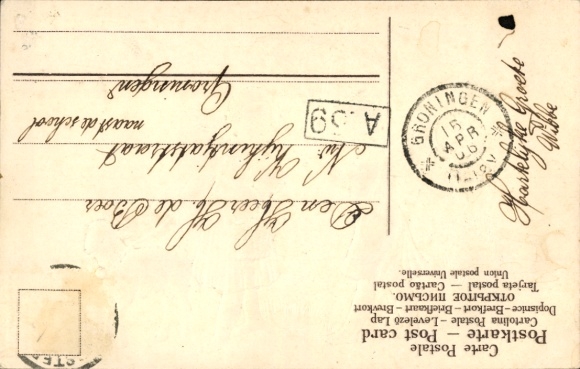 Carte Postale
Postkarte — Post card
Cartolina Postale – Levelező Lap
Dopisnice – Brefkort – Briefkaart – Brevkort
ОТКРЫТОЕ ПИСЬМО.
Tarjeta postal — Cartão postal
Union postale Universelle.
Den Heer H. de Boer
naast de school
Groningen
A.59
GRONINGEN
15
APR
06
Hartelijke Groete
Wibbe